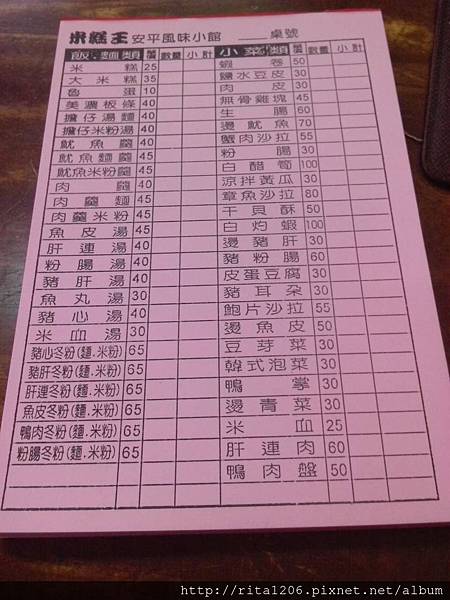 米糕王 安平風味小館 ____桌號
飯.麵類 價 數量 小計
米糕 25
大米糕 35
魯蛋 10
美濃板條 40
擔仔湯麵 40
擔仔米粉湯 40
魷魚焿 40
魷魚焿麵 45
魷魚米粉焿 45
肉焿 40
肉焿麵 45
肉焿米粉 45
魚皮湯 40
肝連湯 40
粉腸湯 40
豬肝湯 40
魚丸湯 30
豬心湯 40
米血湯 30
豬心冬粉(麵.米粉) 65
豬肝冬粉(麵.米粉) 65
肝連冬粉(麵.米粉) 65
魚皮冬粉(麵.米粉) 65
鴨肉冬粉(麵.米粉) 65
粉腸冬粉(麵.米粉) 65
小菜類 價 數量 小計
蝦卷 50
鹽水豆皮 30
肉皮 30
無骨雞塊 45
生腸 60
燙魷魚 70
蟹肉沙拉 55
粉腸 30
白醋筍 100
涼拌黃瓜 30
章魚沙拉 80
干貝酥 50
白灼蝦 100
燙豬肝 30
豬粉腸 60
皮蛋豆腐 30
豬耳朵 30
鮑片沙拉 55
燙魚皮 50
豆芽菜 30
韓式泡菜 30
鴨掌 30
燙青菜 30
米血 25
肝連肉 60
鴨肉盤 50
http://rita1206.pixnet.net/album